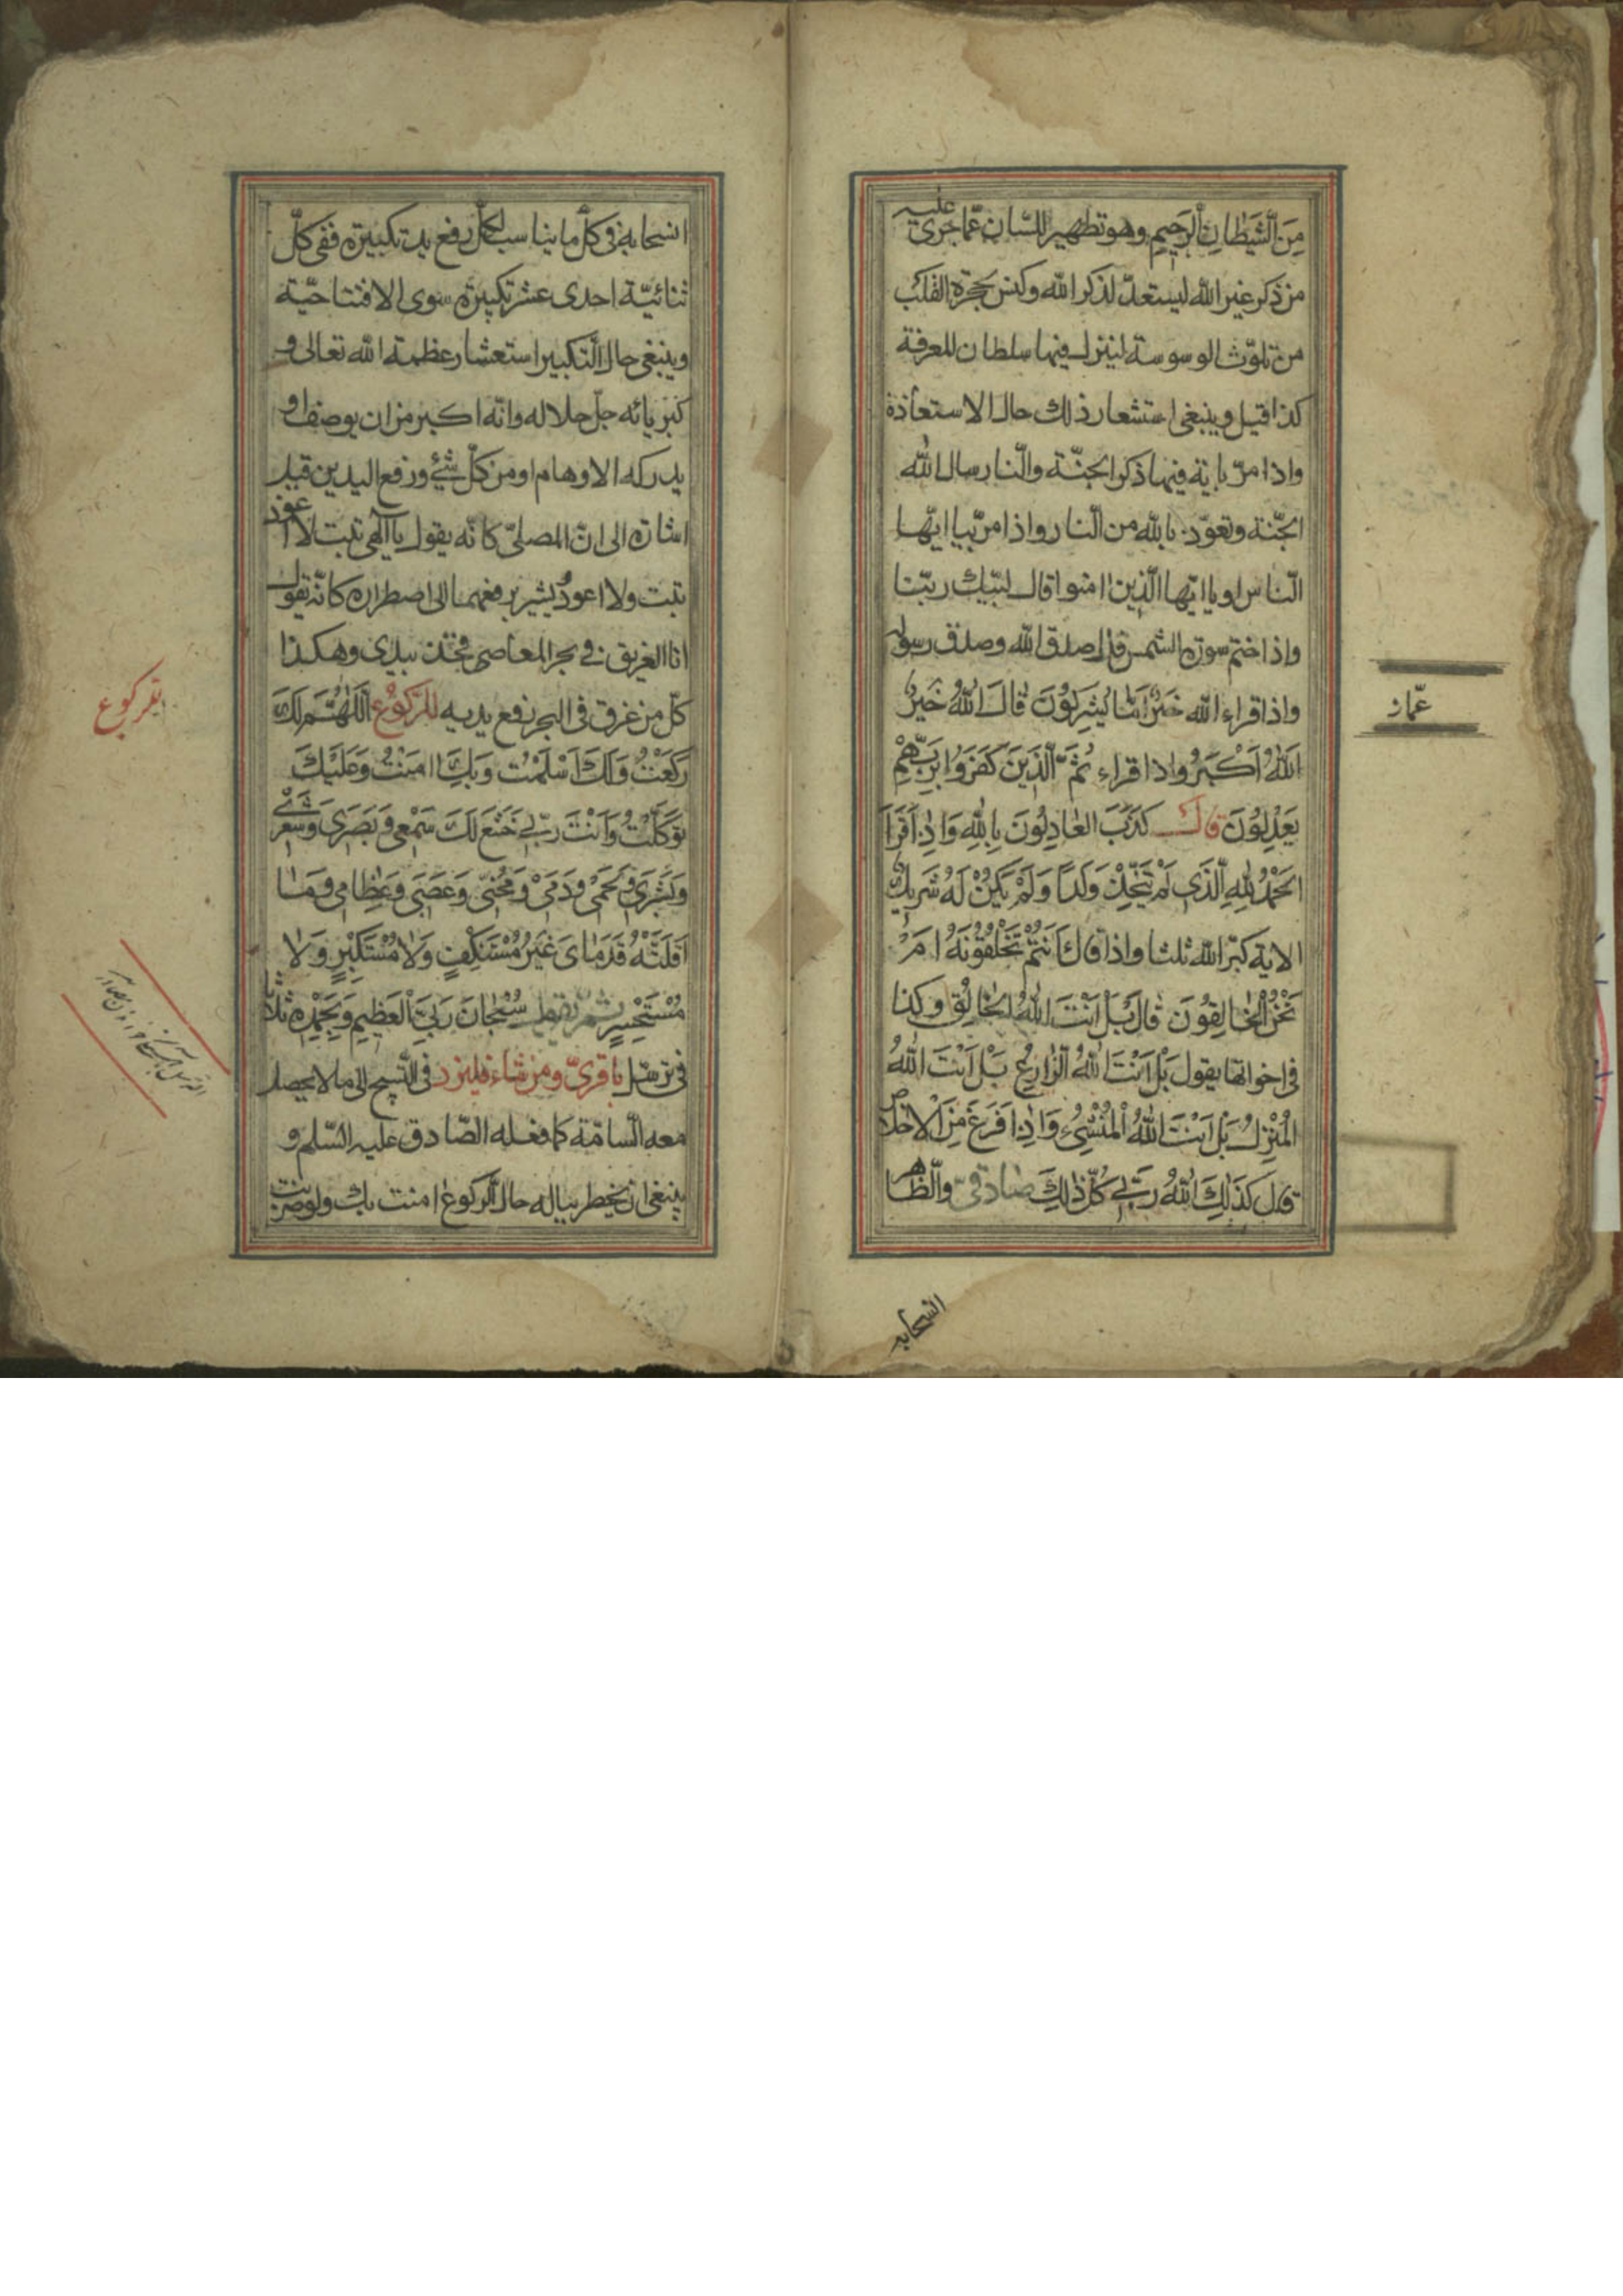 مِنَ الشَّيْطَانِ الرَّجِيمِ وهو تطهير للسّان عمّا جرى عليه
من ذكر غير الله ليستعدّ لذكر الله وكنس حجرة القلب
من تلوّث الوسوسة لينزل فيها سلطان المعرفة
كذا قيل وينبغي استشعار ذلك حال الاستعاذة
واذا مرّ باية فيها ذكر الجنّة والنّار سال الله
الجنّة وتعوّذ بالله من النّار واذا مرّ بيا ايّها
النّاس او يا ايّها الّذين امنوا قال لبّيك ربّنا
واذا ختم سورة الشمس قال صدق الله وصدق رسوله
واذا قراء الله خَيْرٌ اَمَّا يُشْرِكُونَ قَالَ اللهُ خَيْرٌ
اَللهُ اَكْبَرُ واذا قراء ثُمَّ الَّذِينَ كَفَرُوا بِرَبِّهِمْ
يَعْدِلُونَ قال كَذَبَ العَادِلُونَ بِاللهِ وَاِذَا قَرَأَ
الحَمْدُ لِلّٰهِ الَّذِي لَمْ يَتَّخِذْ وَلَدًا وَلَمْ يَكُنْ لَهُ شَرِيكٌ
الاية كبّر الله ثلثا واذا قال ءَاَنْتُمْ تَخْلُقُونَهُ اَمْ
نَحْنُ الْخَالِقُونَ قَالَ بَلْ اَنْتَ اللهُ الخَالِقُ وكذا
فى اخواتها يقول بَلْ اَنْتَ اللهُ الزَّارِعُ بَلْ اَنْتَ اللهُ
المُنْزِلُ بَلْ اَنْتَ اللهُ الْمُنْشِئُ وَاِذَا فَرَغَ مِنَ الْاخلاص
قال كَذٰلِكَ اللهُ رَبّى كُلّ ذٰلِكَ صادقىّ والظّاهر
انسحابه فى كلّ ما يناسب لكلّ رفع يد تكبيرة ففى كلّ
ثنائيّة احدى عشر تكبيرة سوى الافتتاحيّة
وينبغى حال التكبير استعشار عظمة الله تعالى و
كبريائه جلّ جلاله وانّه اكبر من ان يوصف او
يدركه الاوهام او من كلّ شئ ورفع اليدين قيل
اشارة الى انّ المصلّى كانّه يقول يا الهى تبت لا اعود
تبت ولا اعود يشير برفعهما الى اضطراره كانّه يقول
انا الغريق فى بحر المعاصى فخذ بيدى وهكذا
كلّ من غرق فى البحر رفع يديه للرّكوع اَللّٰهُمَّ لَكَ
رَكَعْتُ وَلَكَ اَسْلَمْتُ وَبِكَ اٰمَنْتُ وَعَلَيْكَ
تَوَكَّلْتُ وَاَنْتَ رَبّى خَشَعَ لَكَ سَمْعِى وَبَصَرِى وَشَعْرِى
وَبَشَرِى وَلَحْمِى وَدَمِى وَمُخّى وَعَصَبِى وَعِظَامِى وَمَا
اَقَلَّتْهُ قَدَمَاىَ غَيْرَ مُسْتَنْكِفٍ وَلَا مُسْتَكْبِرٍ وَلَا
مُسْتَحْسِرٍ ثم تقول سُبْحَانَ رَبّىَ الْعَظِيمِ وَبِحَمْدِهِ ثلاثا
فى ترسّل باقرىّ ومن شاء فليزد فى التّسبيح الى ما لا يحصل
معه السّامّة كما فعله الصّادق عليه السّلم و
ينبغى ان يخطر بباله حال الركوع امنت بك ولو ضربت
عمّار
انسحابه